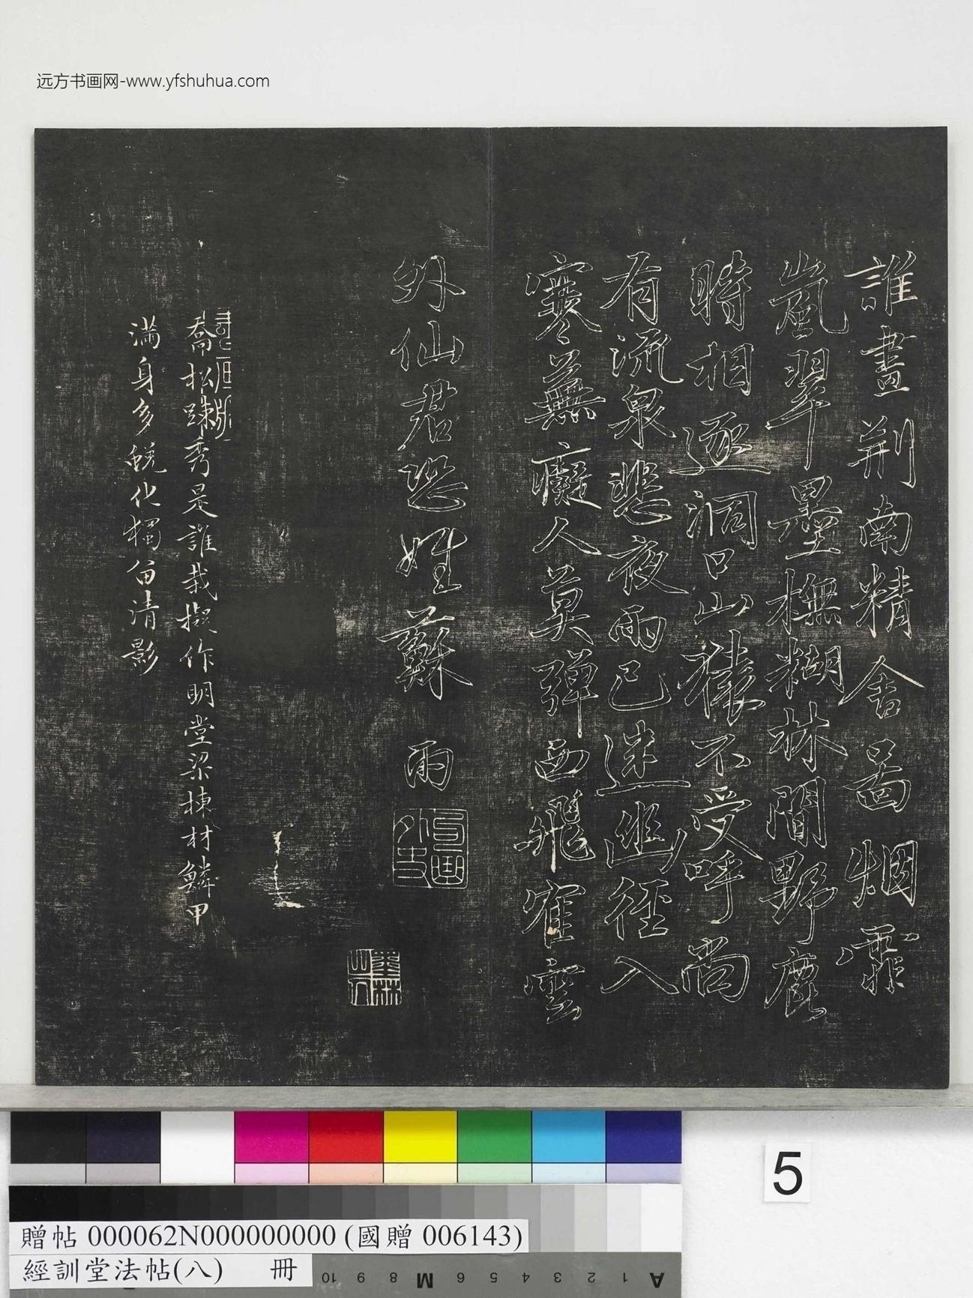 远方书画网-www.yfshuhua.com
誰畫荆南精舍啚烟霏
嵐翠墨橅糊林間野鹿
時相逐洞口山猿不受呼尚
有流泉悲夜雨已迷幽徑入
寒蕪癡人莫彈西飛寉雲
外仙君恐姓蘇 雨
喬松踈秀是誰栽擬作明堂梁棟材鱗甲
滿身多蛻化獨留清影
墨林山人
5
贈帖 000062N000000000 (國贈 006143)
經訓堂法帖(八) 冊
10 9 8 M 6 5 4 3 2 1 A